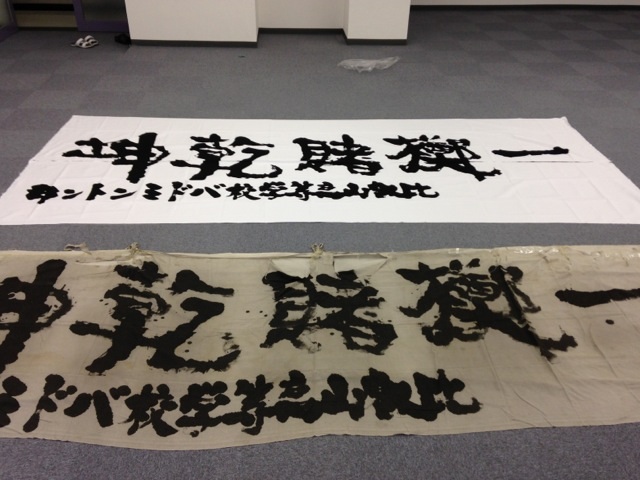 一擲賭乾坤
比叡山高等学校バドミントン部
一擲賭乾坤
比叡山高等学校バドミ